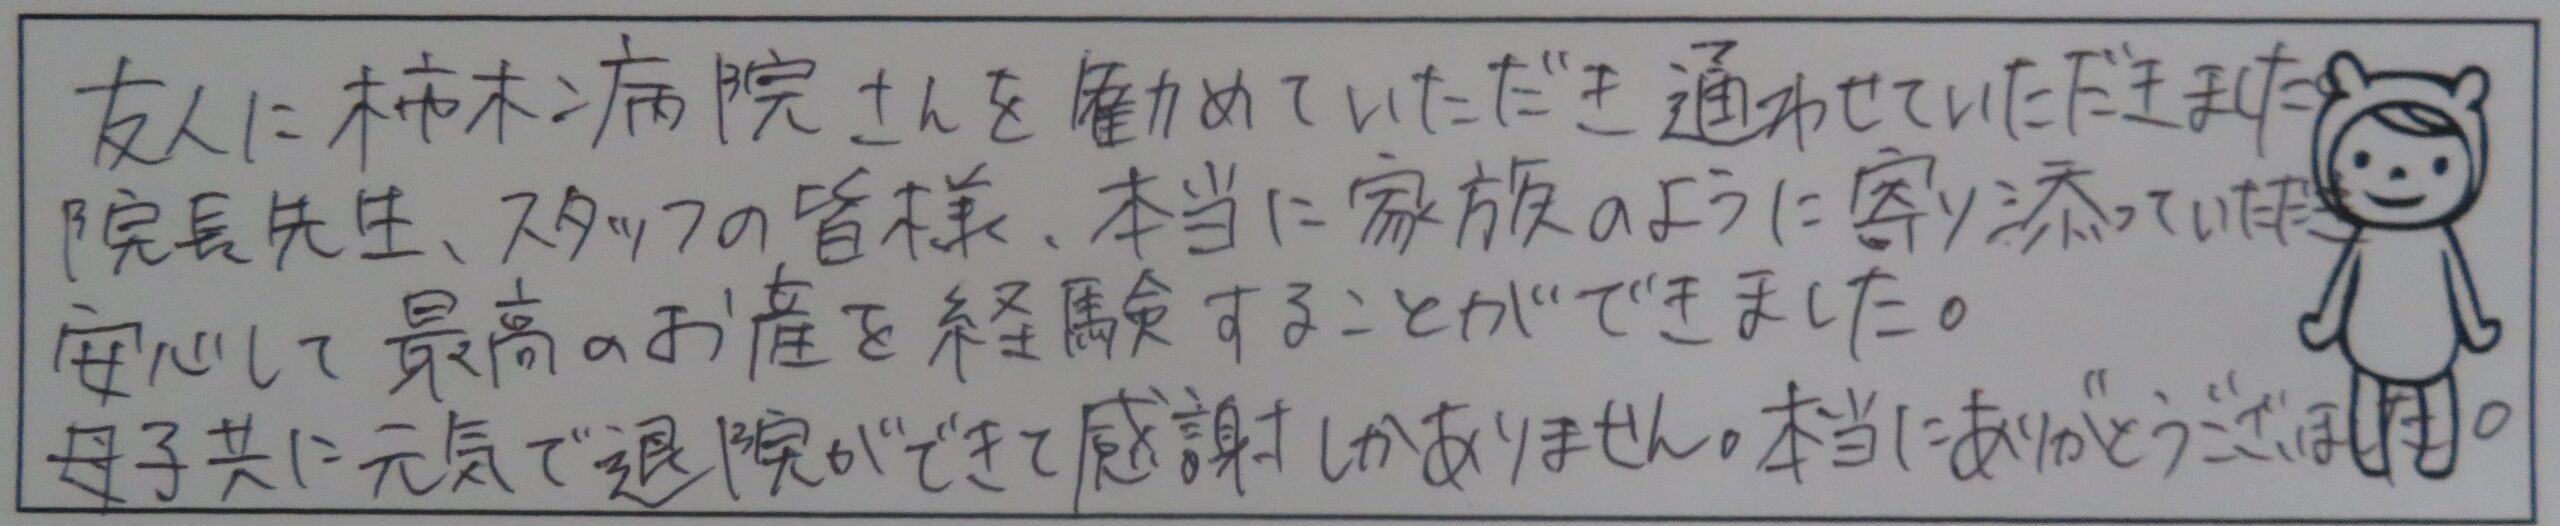 友人に柿木病院さんを勧めていただき通わせていただきました
院長先生、スタッフの皆様、本当に家族のように寄り添っていただき
安心して最高のお産を経験することができました。
母子共に元気で退院ができて感謝しかありません。本当にありがとうございました。